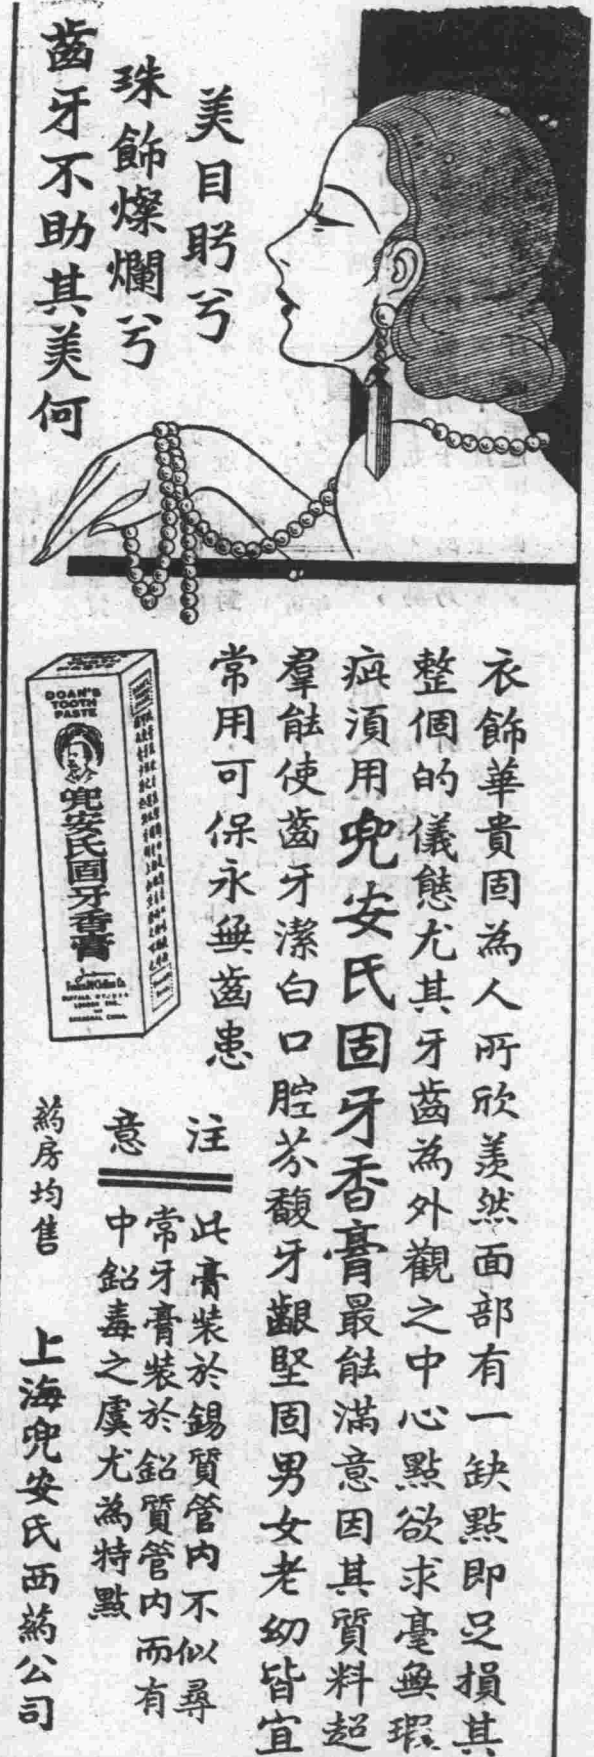 美目盼兮
珠飾燦爛兮
齒牙不助其美何
衣飾華貴固為人所欣羨然面部有一缺點即足損其
整個的儀態尤其牙齒為外觀之中心點欲求毫無瑕
疵須用兜安氏固牙香膏最能滿意因其質料超
羣能使齒牙潔白口腔芬馥牙齦堅固男女老幼皆宜
常用可保永無齒患
DOAN'S
TOOTH
PASTE
兜安氏固牙香膏
注意
此膏裝於錫質管内不似尋
常牙膏裝於鉛質管内而有
中鉛毒之虞尤為特點
藥房均售
上海兜安氏西藥公司